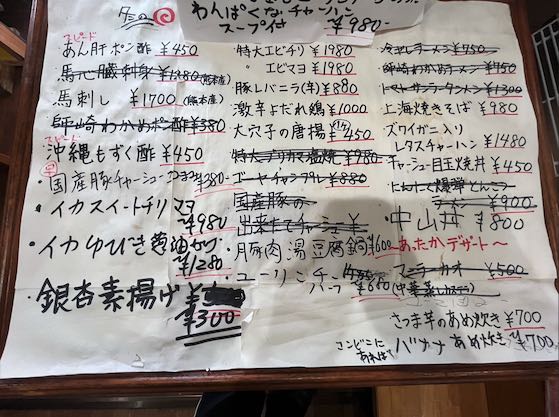 わんぱくなチャーハン
スープ付 ¥980-
スピード
あん肝ポン酢 ¥450
馬心臓刺身 ¥1280 (熊本産)
馬刺し ¥1700 (熊本産)
師崎わかめポン酢 ¥380
スピード
沖縄もずく酢 ¥450
・国産豚チャーシューつまみ ¥380-
・イカスイートチリマヨ ¥980
・イカゆびき葱油がけ ¥1280
・銀杏素揚げ ¥300
特大エビチリ ¥1980
エビマヨ ¥1980
豚レバニラ(辛) ¥880
激辛よだれ鶏 ¥1000
大穴子の唐揚 (1ケ) ¥450
特大ブリカマ塩焼 ¥980
ゴーヤチャンプル ¥880
国産豚の
出来たてチャーシュー
豚肉湯豆腐鍋 ¥600
ユーリンチー
ハーフ ¥680
冷やしラーメン ¥750
師崎わかめラーメン ¥750
トマトサンラータンメン ¥1300
上海焼きそば ¥980
ズワイガニ入り
レタスチャーハン ¥1480
チャーシュー目玉焼丼 ¥450
ラーメン ¥900
・中山丼 ¥800
〜あたたかデザート〜
マーラーカオ ¥500
(中華蒸しカステラ)
さつま芋のあめ炊き ¥700
コンビニに
あれば!
バナナあめ炊き ¥700